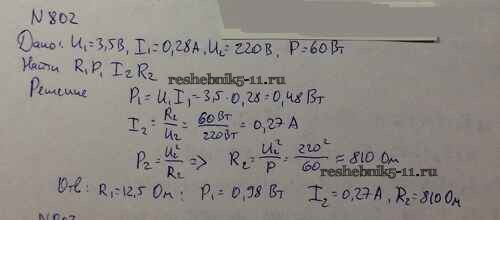 N 802
Дано: U₁=3,5В, I₁=0,28А, U₂=220В, P=60Вт
Найти R₁P₁ I₂ R₂
reshebnik5-11.ru
Решение P₁=U₁I₁=3,5·0,28=0,48Вт
I₂=R₂/U₂=60Вт/220Вт=0,27А
P₂=U₂²/R₂ => R₂=U₂²/P=220²/60≈810 Ом
reshebnik5-11.ru
Отв: R₁=12,5 Ом; P₁=0,98 Вт I₂=0,27А, R₂=810Ом
N803